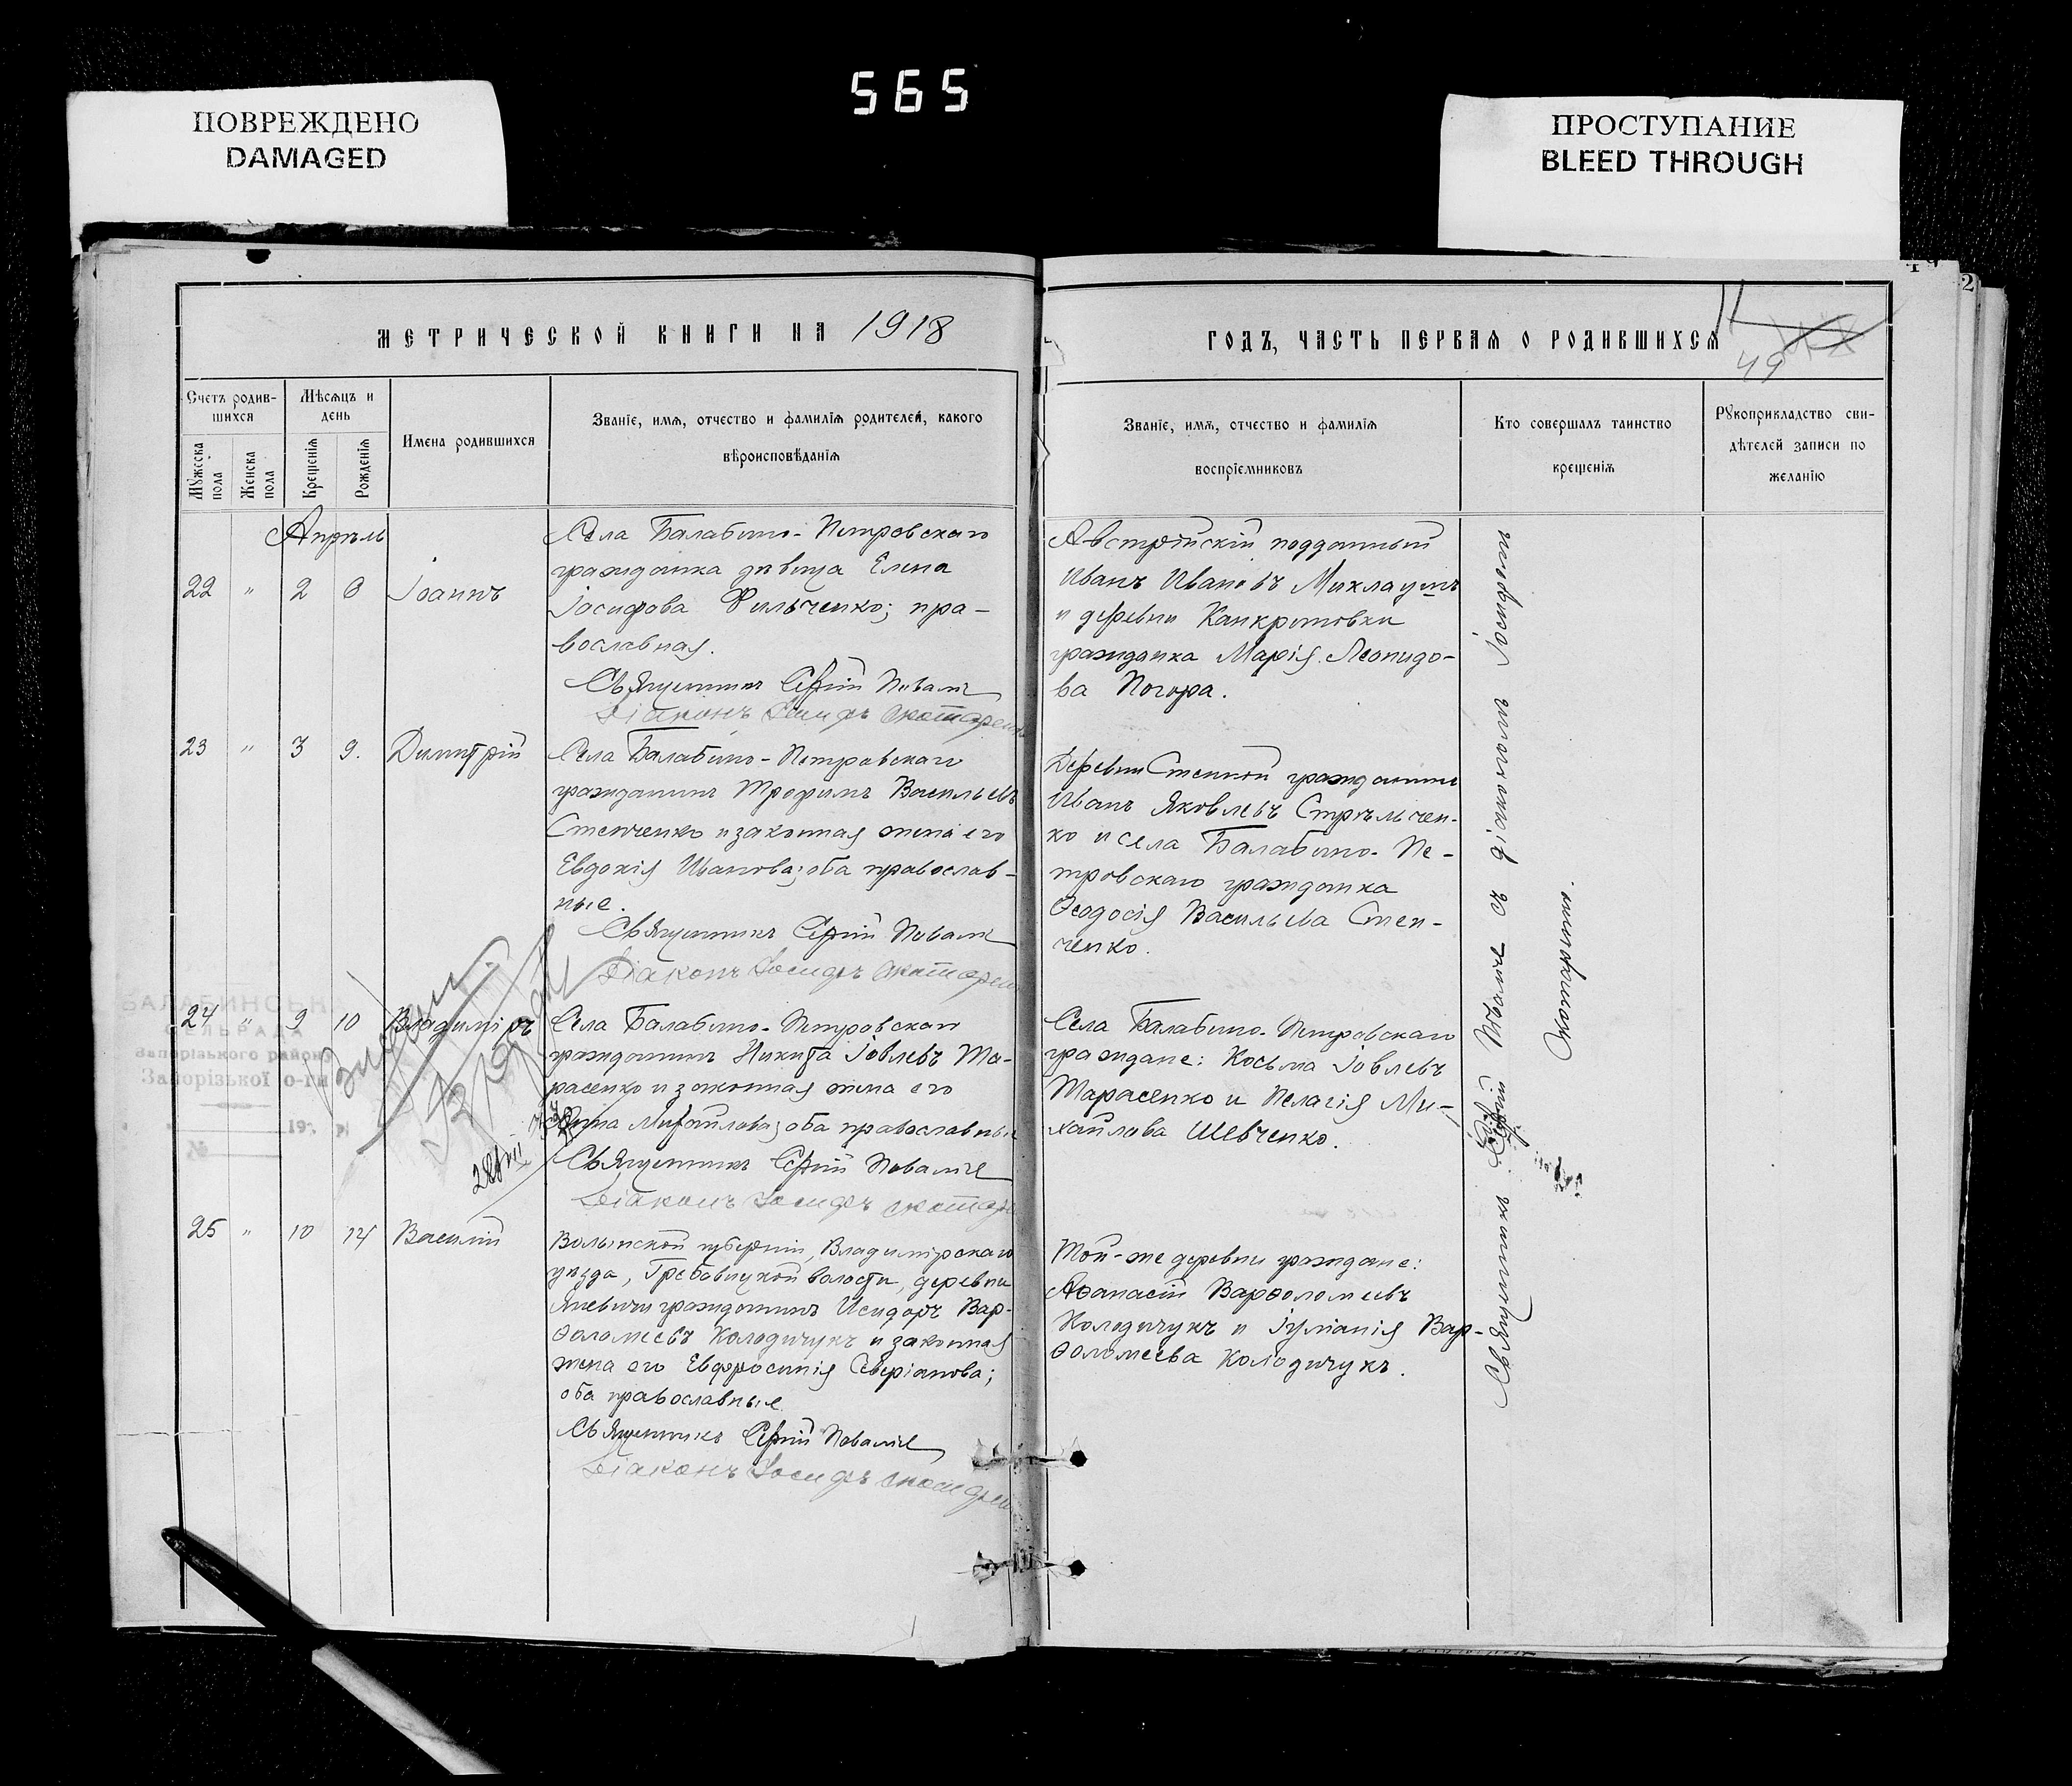 565
ПОВРЕЖДЕНО
DAMAGED
ПРОСТУПАНИЕ
BLEED THROUGH
МЕТРИЧЕСКОЙ КНИГИ НА 1918
ГОДЪ, ЧАСТЬ ПЕРВАЯ О РОДИВШИХСЯ
49
2
Счетъ родив-
шихся
Мужеска пола
Женска пола
Мѣсяцъ и
день
Крещенія
Рожденія
Имена родившихся
Званіе, имя, отчество и фамилія родителей, какого
вѣроисповѣданія
Званіе, имя, отчество и фамилія
воспріемниковъ
Кто совершалъ таинство
крещенія
Рукоприкладство сви-
дѣтелей записи по
желанію
Апрѣль
22 " 2 Іоаннъ
Села Балабино-Петровскаго
гражданка дѣвица Елена
Іосифова Фильченко; пра-
вославная.
Священникъ Сергій
Діаконъ Іосифъ
Австрійскій подданный
Иванъ Ивановъ
и деревни Канкриновки
гражданка Марія Леонидо-
ва Погора.
23 " 3 9. Димитрій
Села Балабино-Петровскаго
гражданинъ Трофимъ Васильевъ
Степченко и законная жена его
Евдокія Иванова; оба православ-
ные.
Священникъ Сергій
Діаконъ Іосифъ
Деревни Степной гражданинъ
Иванъ Яковлевъ Стрѣльчен-
ко и села Балабино-Пе-
тровскаго гражданка
Ѳеодосія Васильева Степ-
ченко.
БАЛАБИНСЬКА
СІЛЬРАДА
Запорізького району
Запорізької о-ти
№
24 " 9 10 Владиміръ
Села Балабино-Петровскаго
гражданинъ Никита Іовлевъ Та-
расенко и законная жена его
Анна Михайлова; оба православные
Священникъ Сергій
Діаконъ Іосифъ
Села Балабино-Петровскаго
граждане: Косьма Іовлевъ
Тарасенко и Пелагія Ми-
хайлова Шевченко.
25 " 10 14 Василій
Волынской губерніи, Владимірскаго
уѣзда, Грибовицкой волости, деревни
Яневичи гражданинъ Исидоръ Вар-
ѳоломеевъ Колодичукъ и законная
жена его Евфросинія Северіанова;
оба православные.
Священникъ Сергій
Діаконъ Іосифъ
Той-же деревни граждане:
Аѳанасій Варѳоломеевъ
Колодичукъ и Іуліанія Вар-
ѳоломеева Колодичукъ.
Священникъ Сергій съ діакономъ Іосифомъ